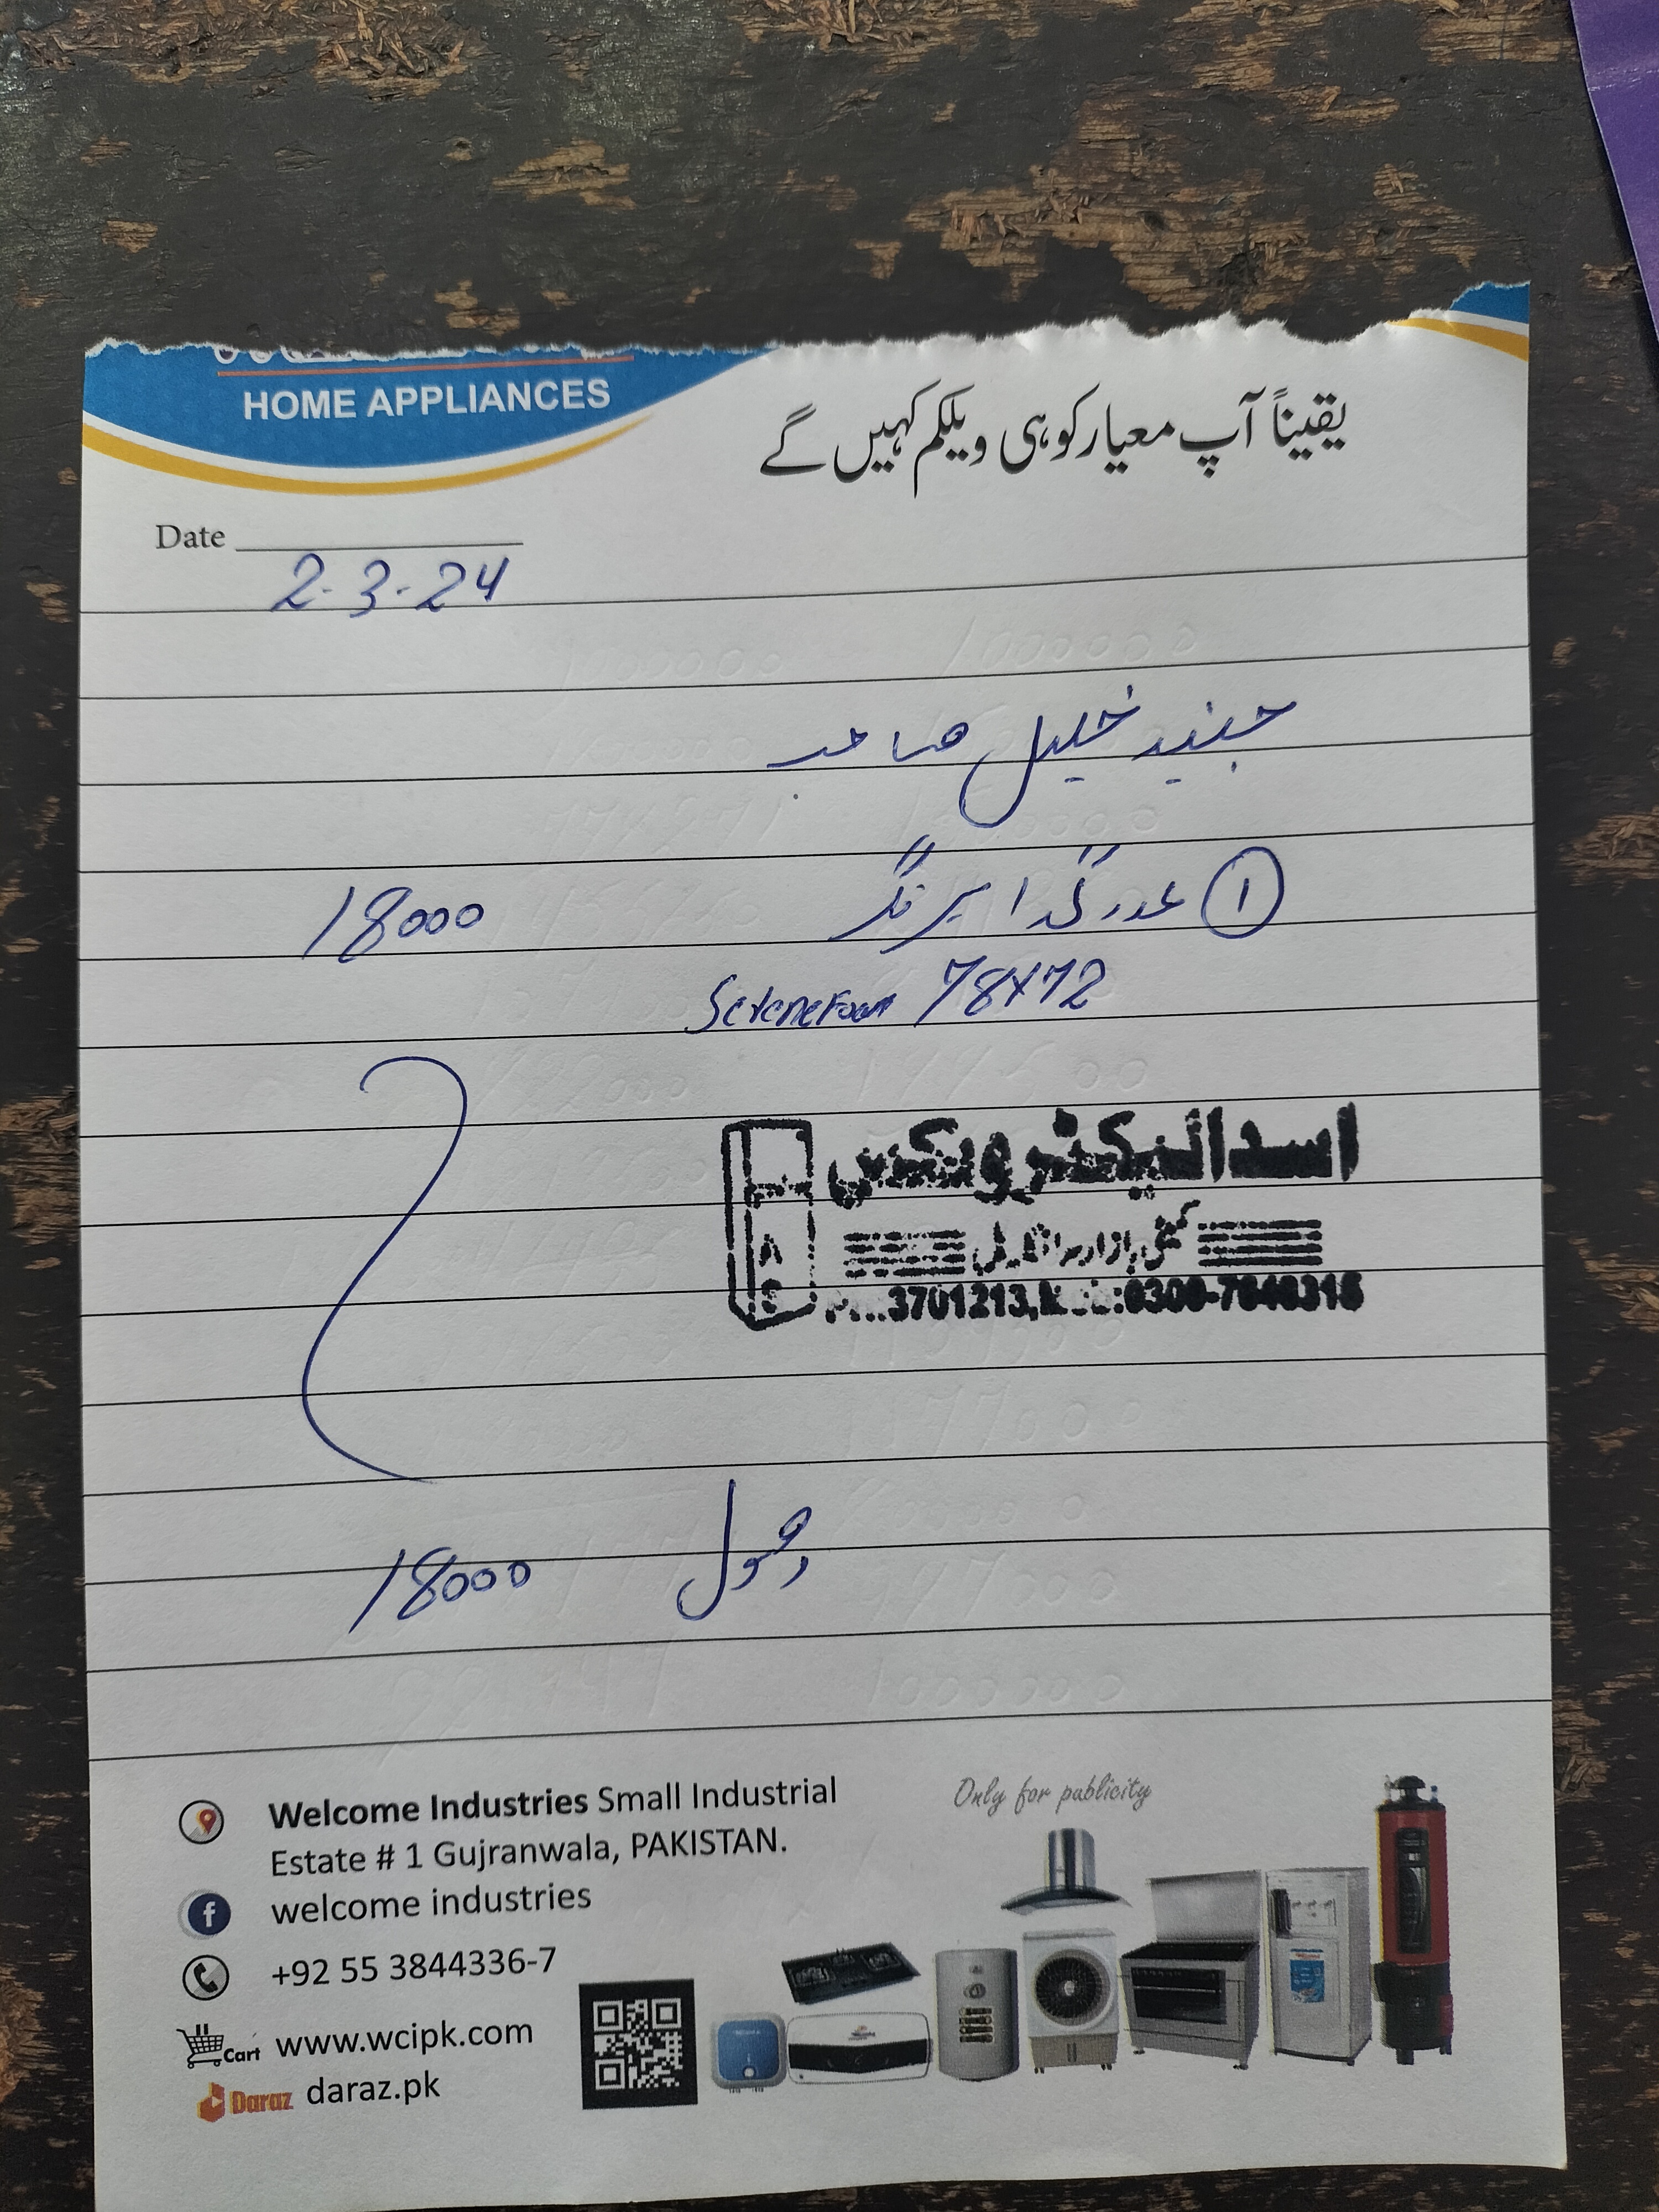 HOME APPLIANCES
یقیناً آپ معیار کو ہی ویلکم کہیں گے
Date
2-3-24
جنید خلیل صاحب
① عدد گدا سپرنگ 18000
78X72
اسد الیکٹرونکس
کمیٹی بازار
3701213,
وصول 18000
Welcome Industries Small Industrial
Estate # 1 Gujranwala, PAKISTAN.
welcome industries
+92 55 3844336-7
Cart www.wcipk.com
Daraz daraz.pk
Only for publicity